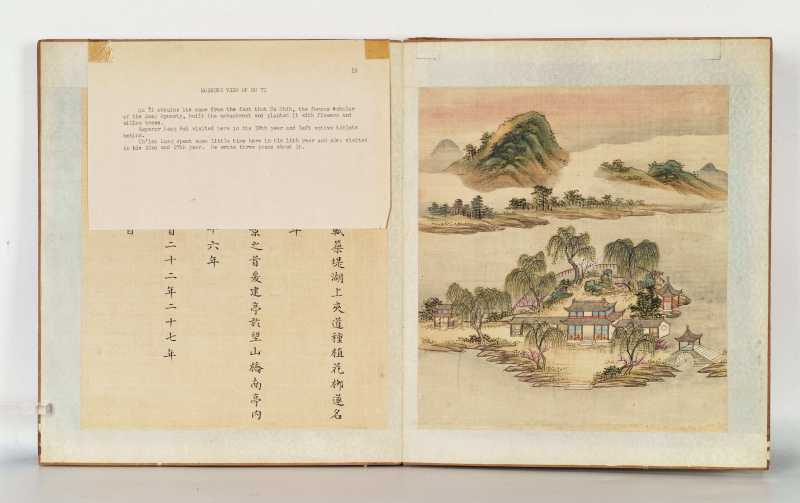 MORNING VIEW OF SU TI
Su Ti obtains its name from the fact that Su Shih, the famous scholar
of the Sung Dynasty, built the embankment and planted it with flowers and
willow trees.
Emperor Kang Hsi visited here in his year and left votive tablets
behind.
Ch'ien Lung spent some little time here in his year and also visited
in his 22nd and 27th year. He wrote three poems about it.
築堤湖上夾道種植花柳遂名
年
景之首爰建亭於望山橋南亭內
十六年
二十二年二十七年